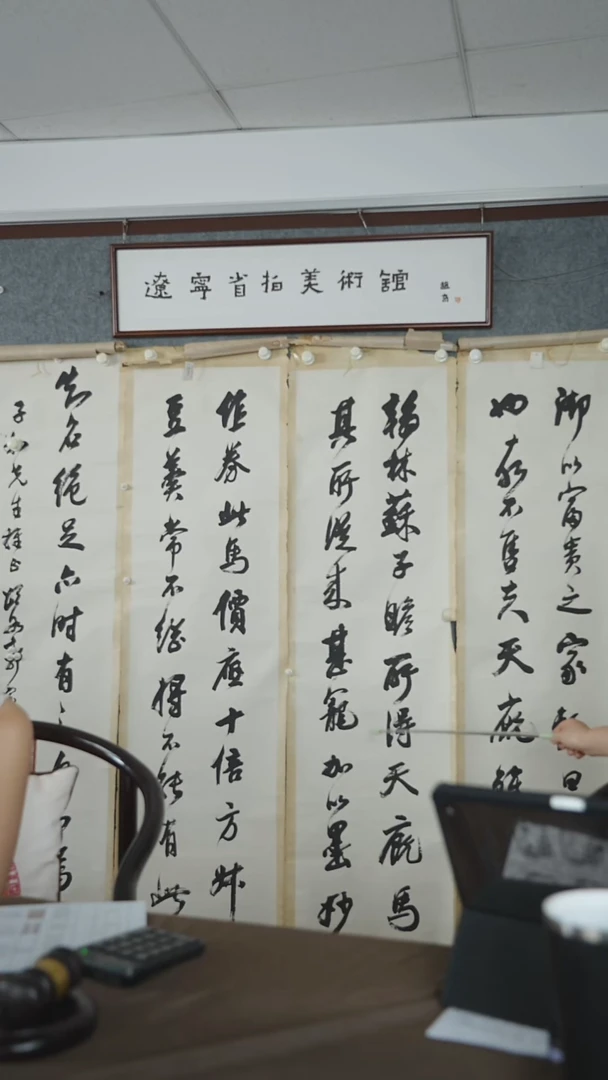 遼寧省拍美術館
御以富貴之家輒曰
也故不售夫天廄雖
翰林蘇子瞻所得天廄馬
其所從來甚寵加以墨妙
作券此馬價應十倍方叔
豆羹常不繼將不能有此
知名絕足亦時有之
先生雅正